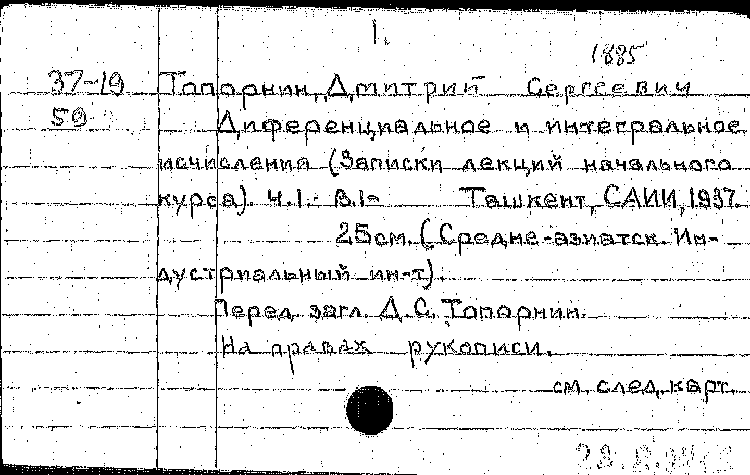 1.
1885
37-19 Топорнин, Дмитрий Сергеевич
59 Диференциальное и интегральное
исчисления (Записки лекций начального
курса). Ч.1.- В.1- Ташкент, САИИ, 1937.
25см. (Средне-азиатск. Ин-
дустриальный ин-т).
Перед загл. Д.С. Топорнин.
На правах рукописи.
см. след. карт.